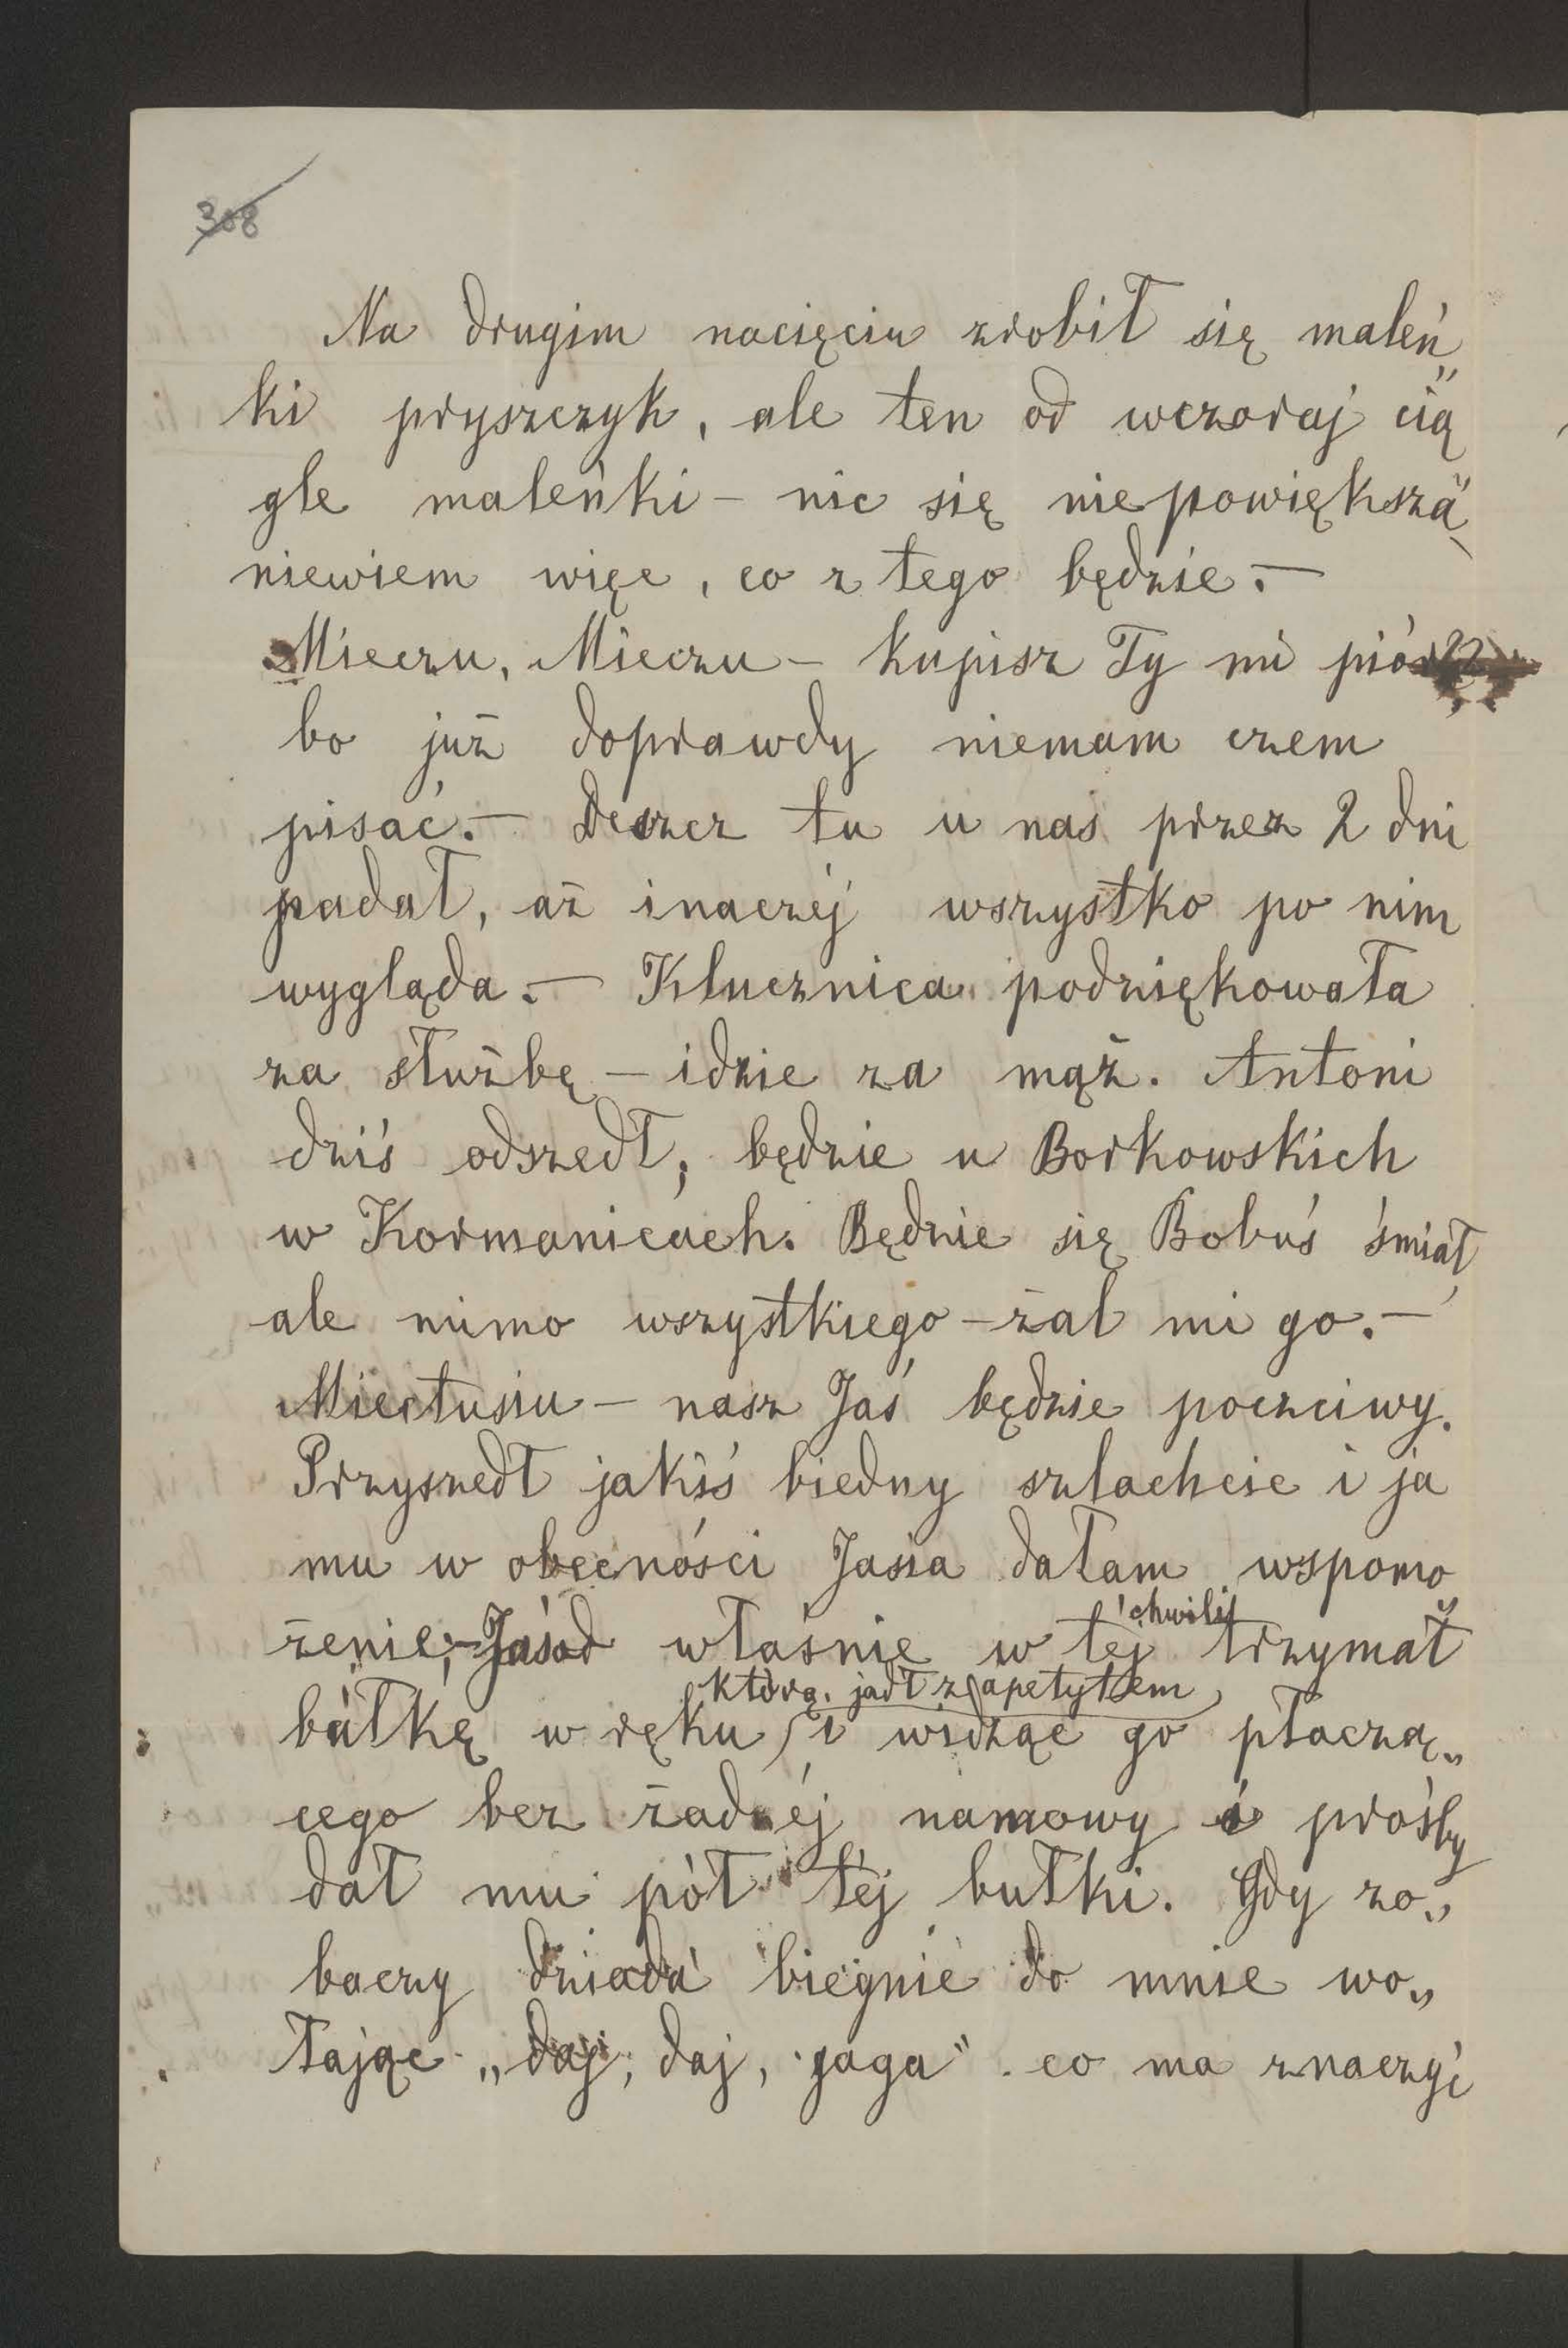 308
Na drugim nacięciu zrobił się maleń„
ki pryszczyk, ale ten od wczoraj cią„
gle maleńki – nic się niepowiększa,
niewiem więc, co z tego będzie. –
Mieczu, Mieczu – kupisz Ty mi
bo już doprawdy niemam czem
pisać. – Deszcz tu u nas przez 2 dni
padał, aż inaczéj wszystko po nim
wygląda. – Klucznica podziękowała
za służbę – idzie za mąż. Antoni
dziś odszedł, będzie u Borkowskich
w Kormanicach. Będzie się Bobuś śmiał,
ale mimo wszystkiego – żal mi go. –
Mieciusiu – nasz Jaś będzie poczciwy.
Przyszedł jakiś biedny szlachcic i ja
mu w obecności Jasia dałam wspomo
żenie; – Jaś właśnie w téj chwili trzymał
bułkę w ręku którą jadł z apetytem, i widząc go płaczą„
cego bez żadnéj namowy i prośby
dał mu pół téj bułki. Gdy zo„
baczy dziada biegnie do mnie wo„
łając „daj, daj, gaga“. co ma znaczyć